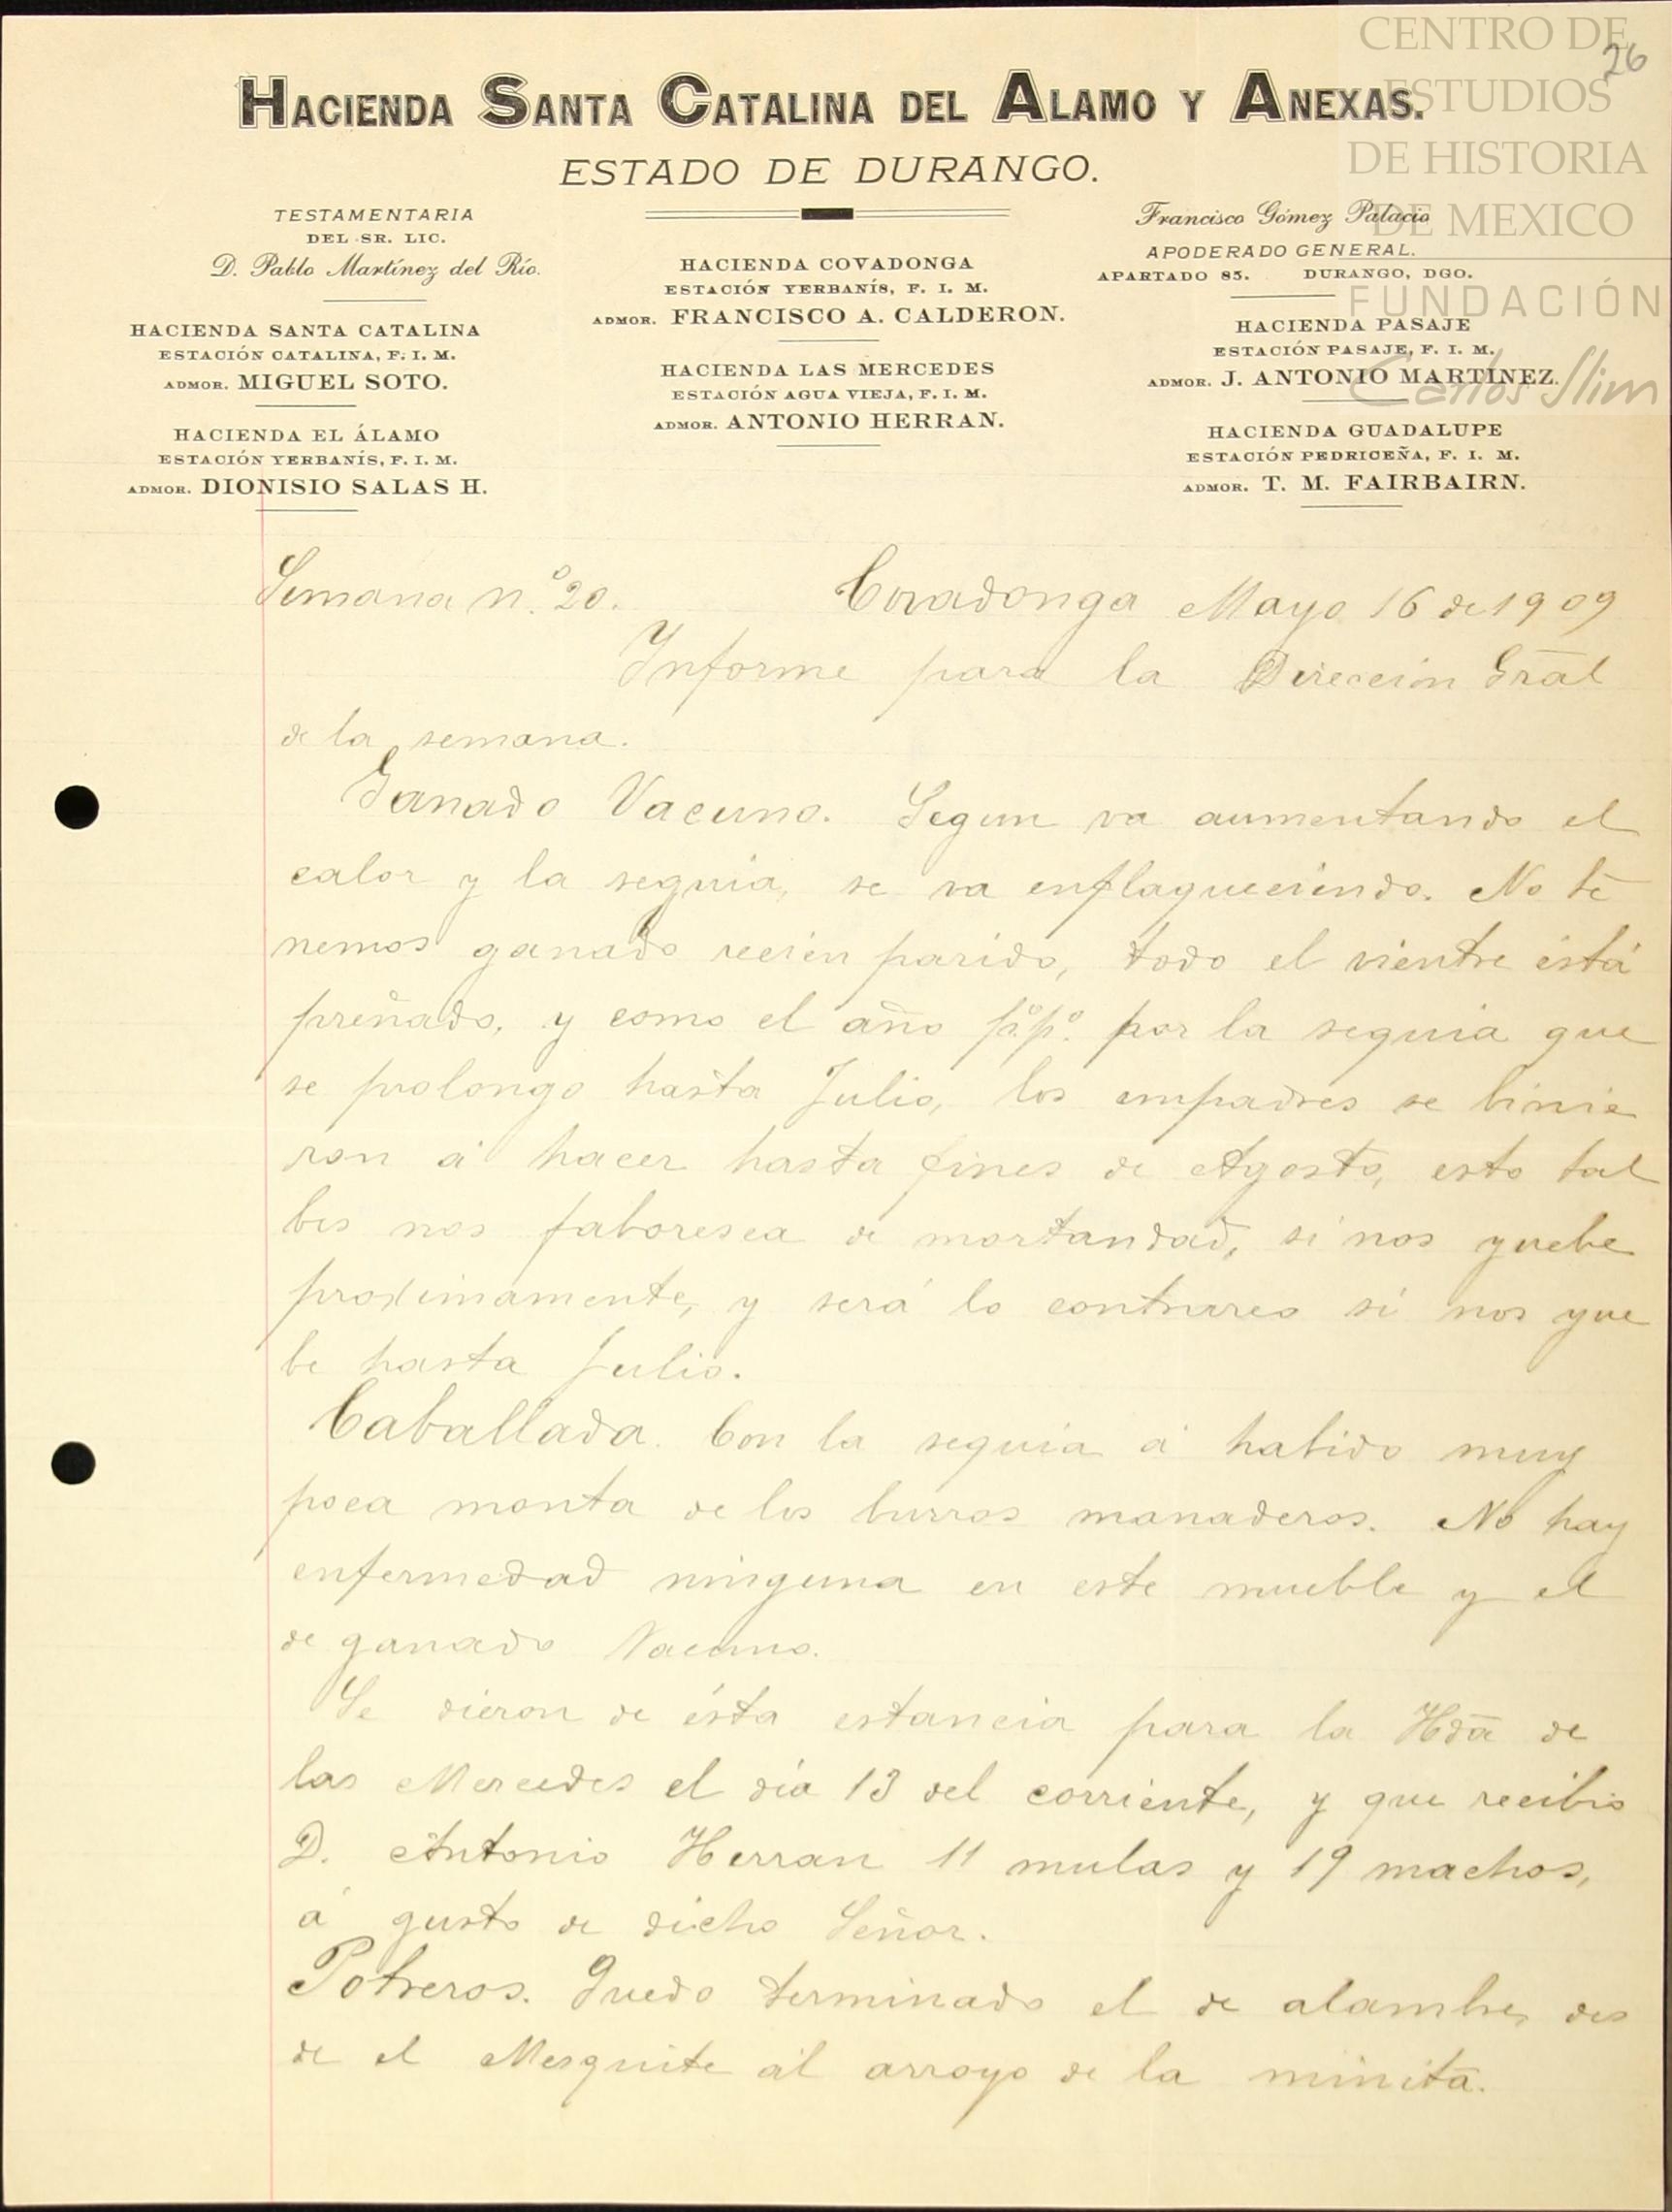 CENTRO DE
ESTUDIOS
DE HISTORIA
DE MEXICO
FUNDACIÓN
Carlos Slim
26
HACIENDA SANTA CATALINA DEL ALAMO Y ANEXAS.
ESTADO DE DURANGO.
TESTAMENTARIA
DEL SR. LIC.
D. Pablo Martínez del Río.
HACIENDA SANTA CATALINA
ESTACIÓN CATALINA, F. I. M.
ADMOR. MIGUEL SOTO.
HACIENDA EL ÁLAMO
ESTACIÓN YERBANÍS, F. I. M.
ADMOR. DIONISIO SALAS H.
HACIENDA COVADONGA
ESTACIÓN YERBANÍS, F. I. M.
ADMOR. FRANCISCO A. CALDERON.
HACIENDA LAS MERCEDES
ESTACIÓN AGUA VIEJA, F. I. M.
ADMOR. ANTONIO HERRAN.
Francisco Gómez Palacio
APODERADO GENERAL.
APARTADO 85. DURANGO, DGO.
HACIENDA PASAJE
ESTACIÓN PASAJE, F. I. M.
ADMOR. J. ANTONIO MARTÍNEZ.
HACIENDA GUADALUPE
ESTACIÓN PEDRICEÑA, F. I. M.
ADMOR. T. M. FAIRBAIRN.
Semana n.º 20. Covadonga Mayo 16 de 1909
Informe para la Direccion Gral
de la semana.
Ganado Vacuno. Segun va aumentando el
calor y la seguia, se va enflaqueciendo. No te
nemos ganado recien parido, todo el vientre está
preñado, y como el año p.º p.º por la seguia que
se prolongo hasta Julio, los empadres se binie
ron á hacer hasta fines de Agosto, esto tal
bes nos faboresca de mortandad, si nos yuebe
proximamente, y será lo contrareo si nos yue
be hasta Julio.
Caballada. Con la seguia á habido muy
poca monta de los burros manaderos. No hay
enfermedad ninguna en este mueble y el
de ganado Vacuno.
Se dieron de ésta estancia para la Hda de
las Mercedes el dia 13 del corriente, y que recibio
D. Antonio Herran 11 mulas y 19 machos,
á gusto de dicho Señor.
Potreros. Quedo terminado el de alambre, des
de el Mesquite al arroyo de la minita.